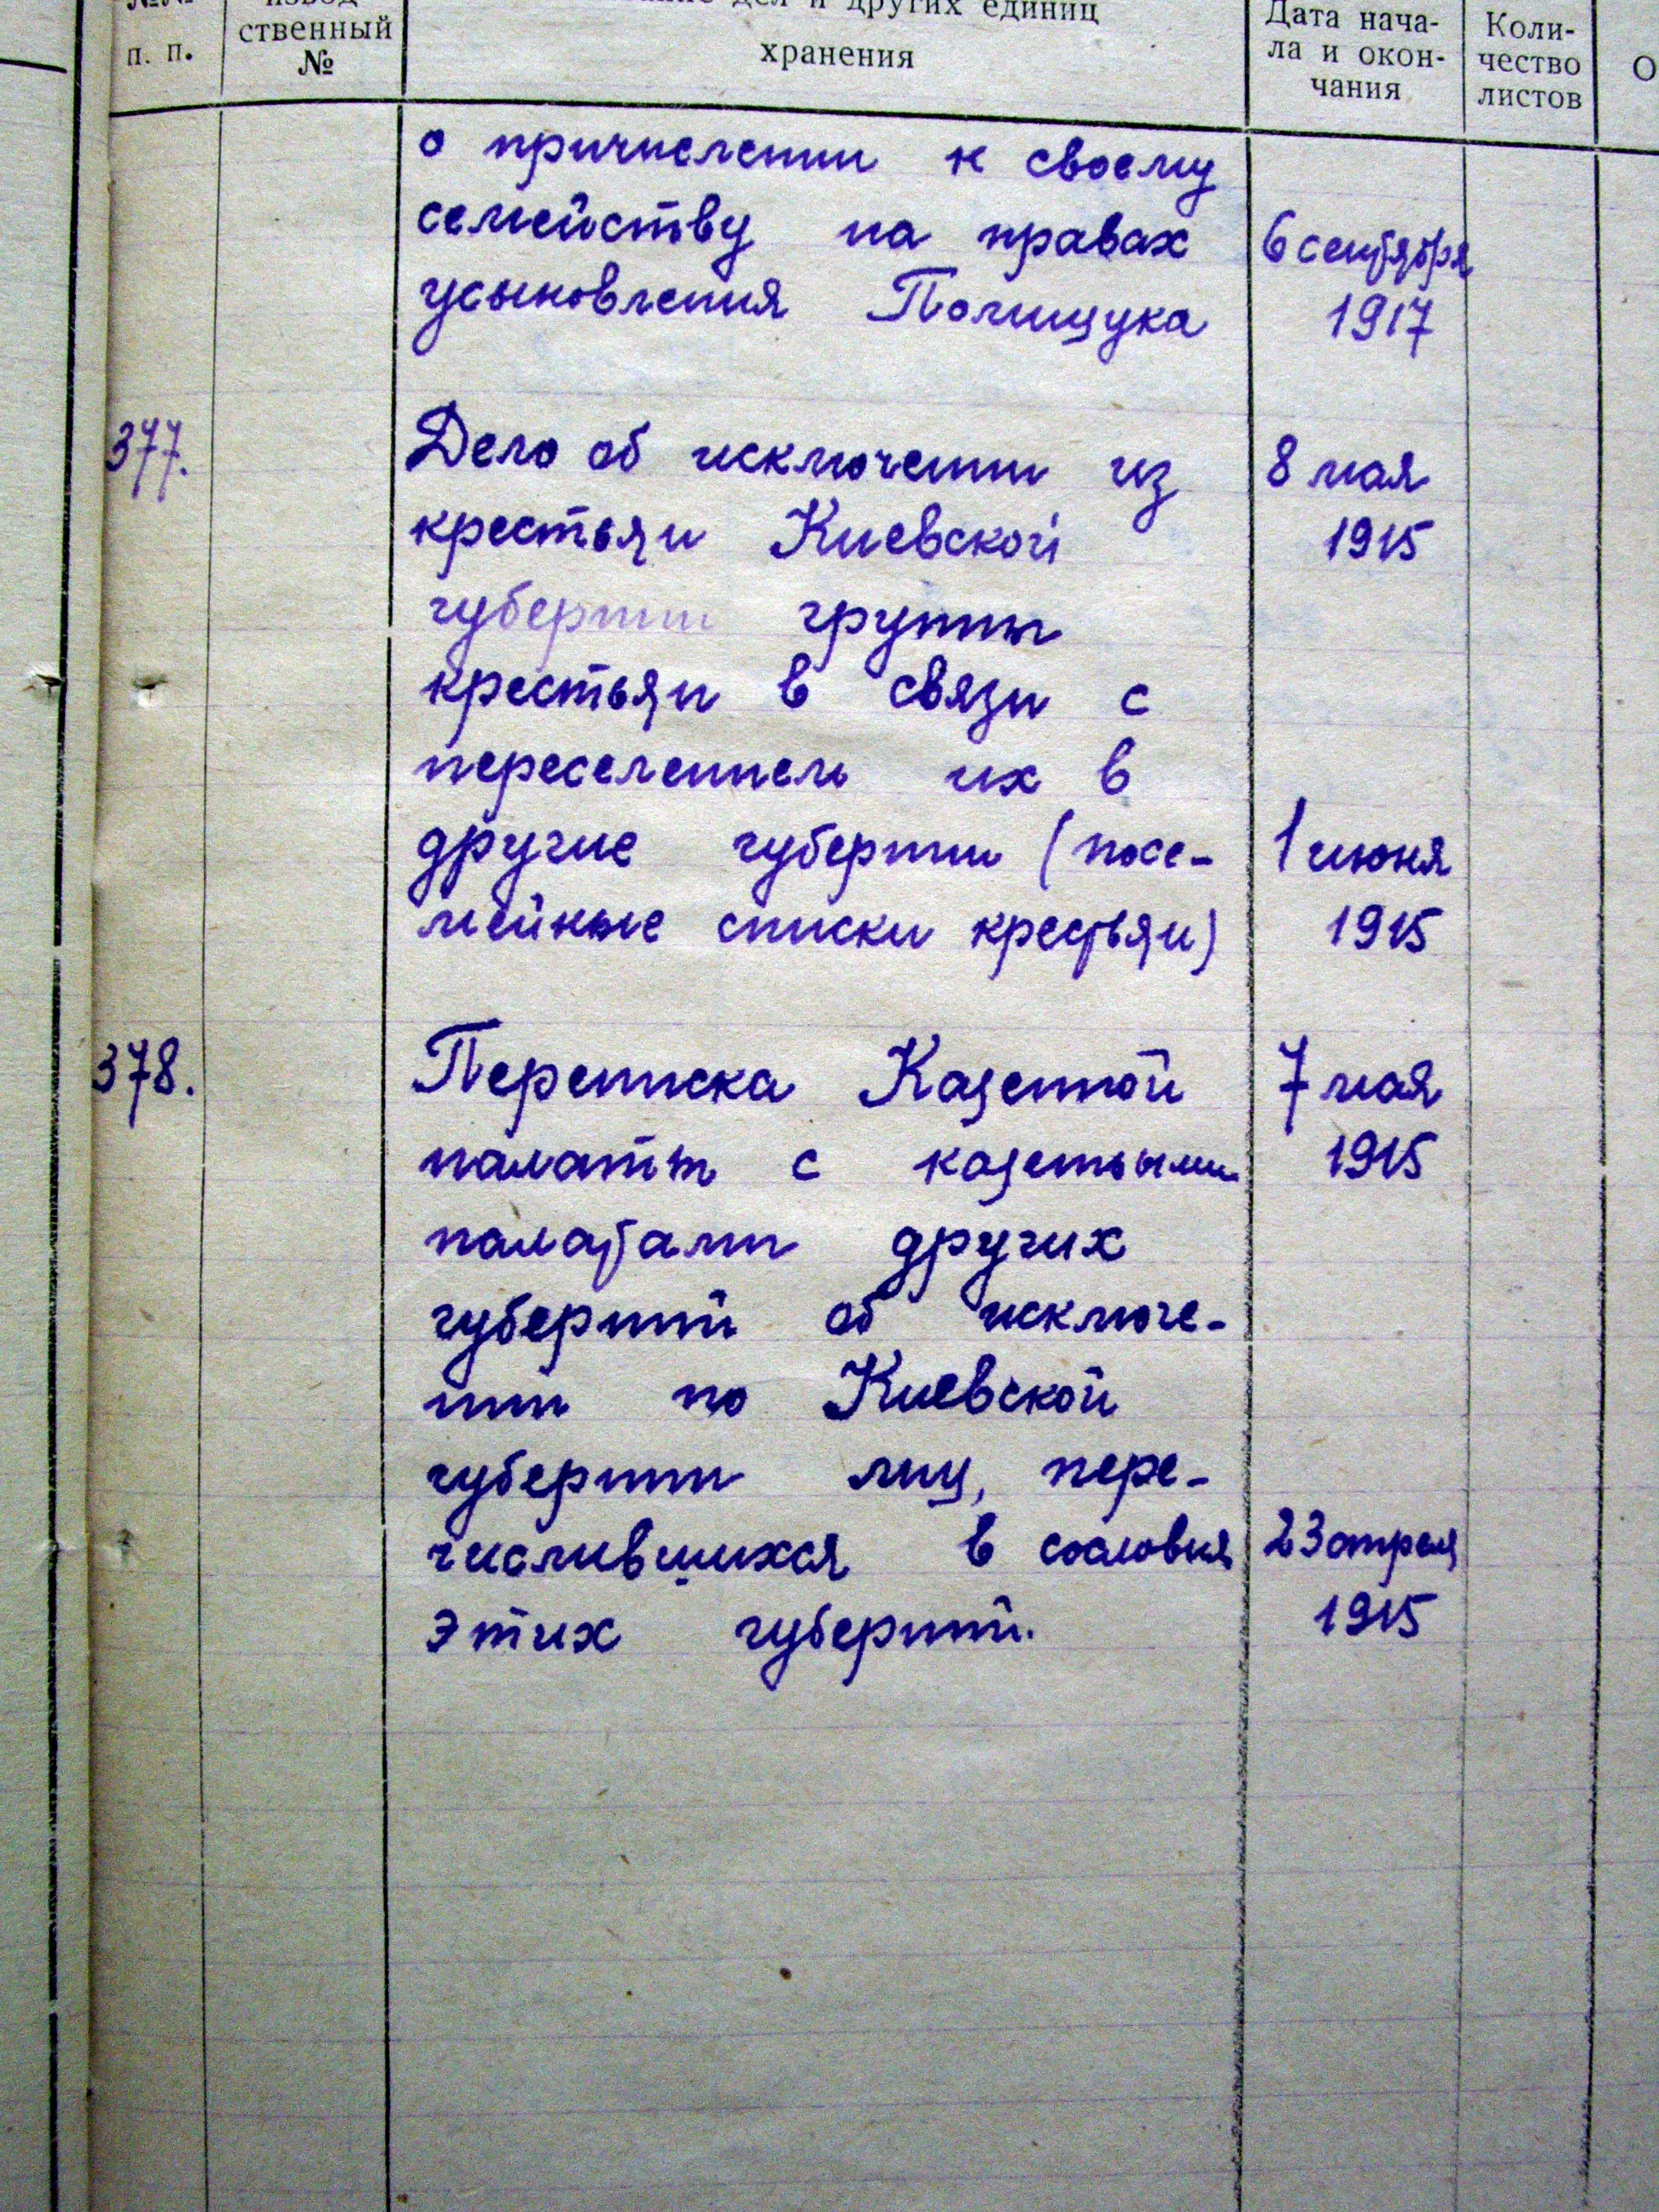 №№
п. п.
извод-
ственный
№
дел и других единиц
хранения
Дата нача-
ла и окон-
чания
Коли-
чество
листов
о причислении к своему
семейству на правах
усыновления Полищука
6 сентября
1917
377.
Дело об исключении из
крестьян Киевской
губернии группы
крестьян в связи с
переселением их в
другие губернии (посе-
мейные списки крестьян)
8 мая
1915
1 июня
1915
378.
Переписка Казенной
палаты с казенными
палатами других
губерний об исключе-
нии по Киевской
губернии лиц, пере-
числившихся в сословия
этих губерний.
7 мая
1915
23 апреля
1915